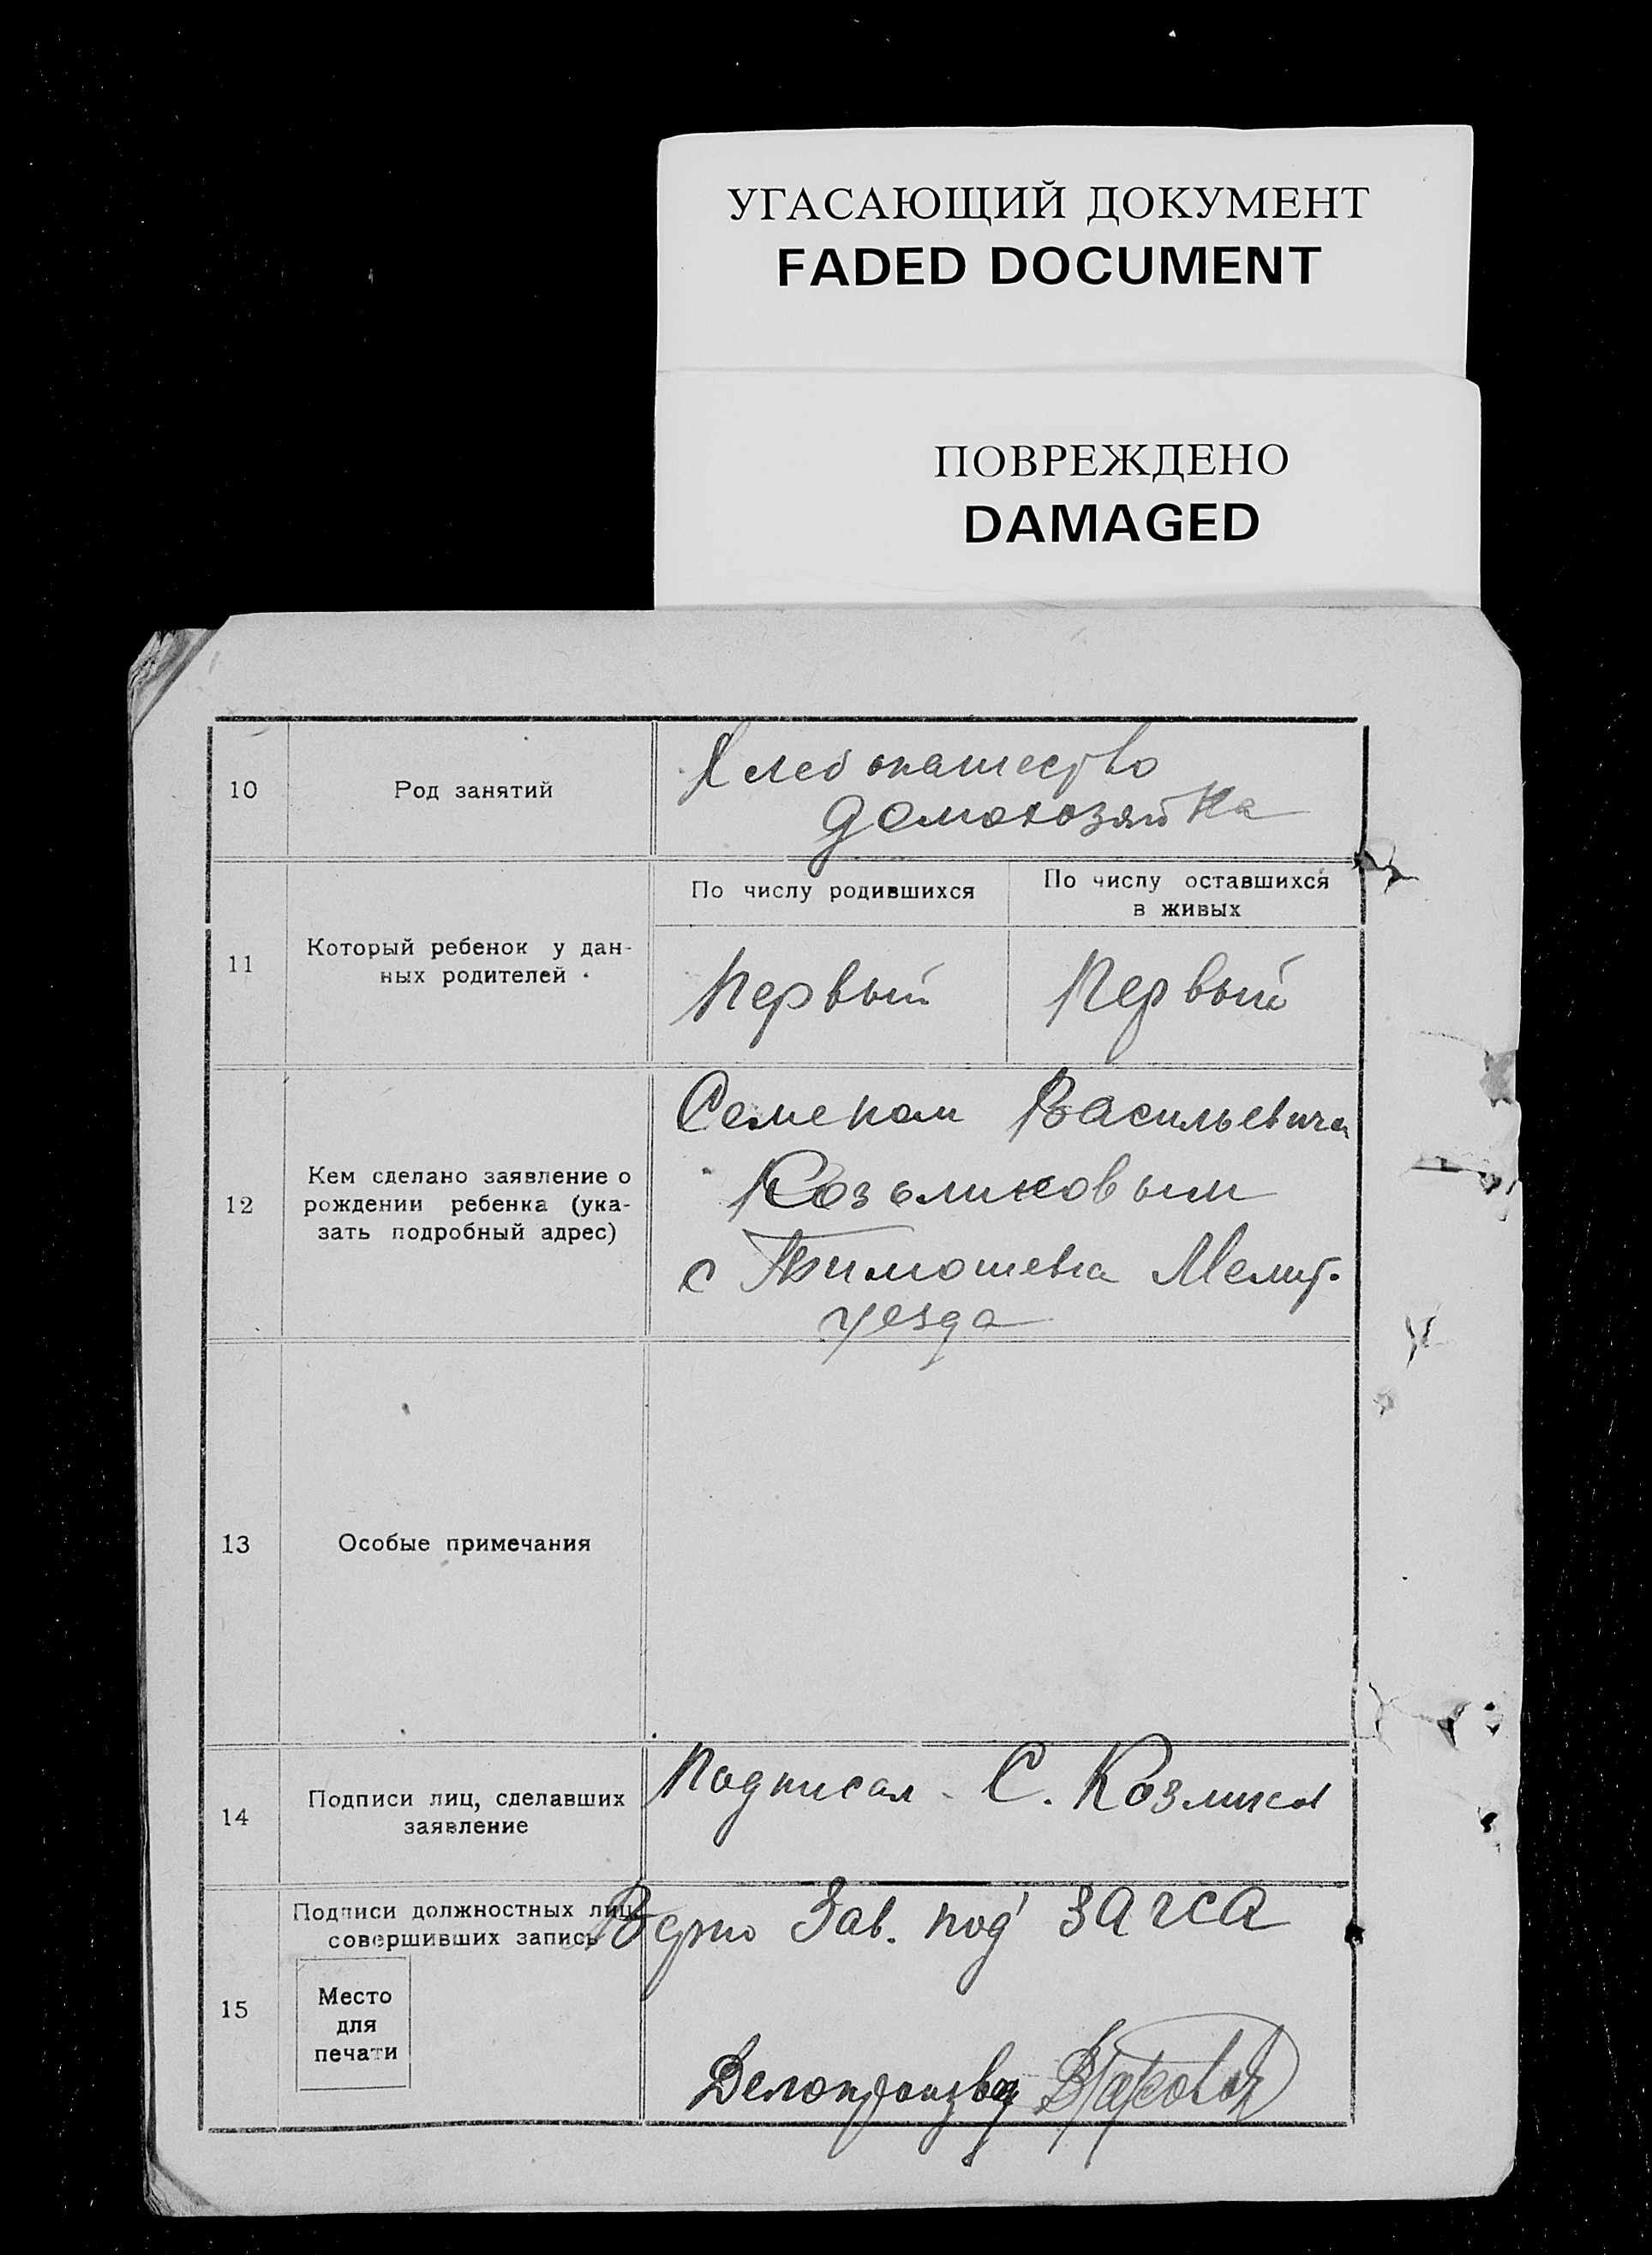 УГАСАЮЩИЙ ДОКУМЕНТ
FADED DOCUMENT
ПОВРЕЖДЕНО
DAMAGED
10
Род занятий
Хлебопашество
домохозяйка
11
Который ребенок у дан-
ных родителей
По числу родившихся
По числу оставшихся
в живых
Первый
Первый
12
Кем сделано заявление о
рождении ребенка (ука-
зать подробный адрес)
Семеном Васильевича
Козьмиковым
с Тимошевка Мелит.
уезда
13
Особые примечания
14
Подписи лиц, сделавших
заявление
Подписал - С. Козмиков
15
Подписи должностных лиц,
совершивших запись
Место
для
печати
Верно Зав. под' загса
Делопроизвод